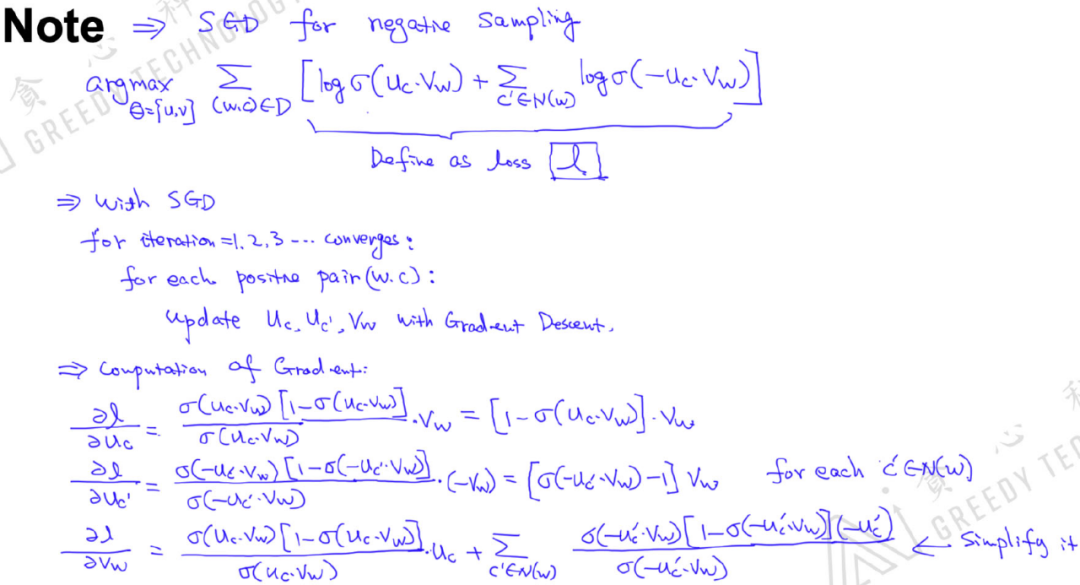 Note ⇒ SGD for negative sampling
argmax_{θ=[u,v]} ∑_{(w,c)∈D} [log σ(u_c·v_w) + ∑_{c'∈N(w)} log σ(-u_{c'}·v_w)]
Define as loss l
⇒ with SGD
for iteration=1,2,3 --- converges:
for each positive pair(w.c):
update u_c, u_{c'}, v_w with Gradient Descent.
⇒ Computation of Gradient:
∂l/∂u_c = σ(u_c·v_w)[1-σ(u_c·v_w)] / σ(u_c·v_w) ·v_w = [1-σ(u_c·v_w)]·v_w
∂l/∂u_{c'} = σ(-u_{c'}·v_w)[1-σ(-u_{c'}·v_w)] / σ(-u_{c'}·v_w) ·(-v_w) = [σ(-u_{c'}·v_w)-1] v_w for each c'∈N(w)
∂l/∂v_w = σ(u_c·v_w)[1-σ(u_c·v_w)] / σ(u_c·v_w) ·u_c + ∑_{c'∈N(w)} σ(-u_{c'}·v_w)[1-σ(-u_{c'}·v_w)](-u_{c'}) / σ(-u_{c'}·v_w) ← Simplify it
貪心科
GREEDY TECHNOLOGY
貪心科
GREEDY TEC